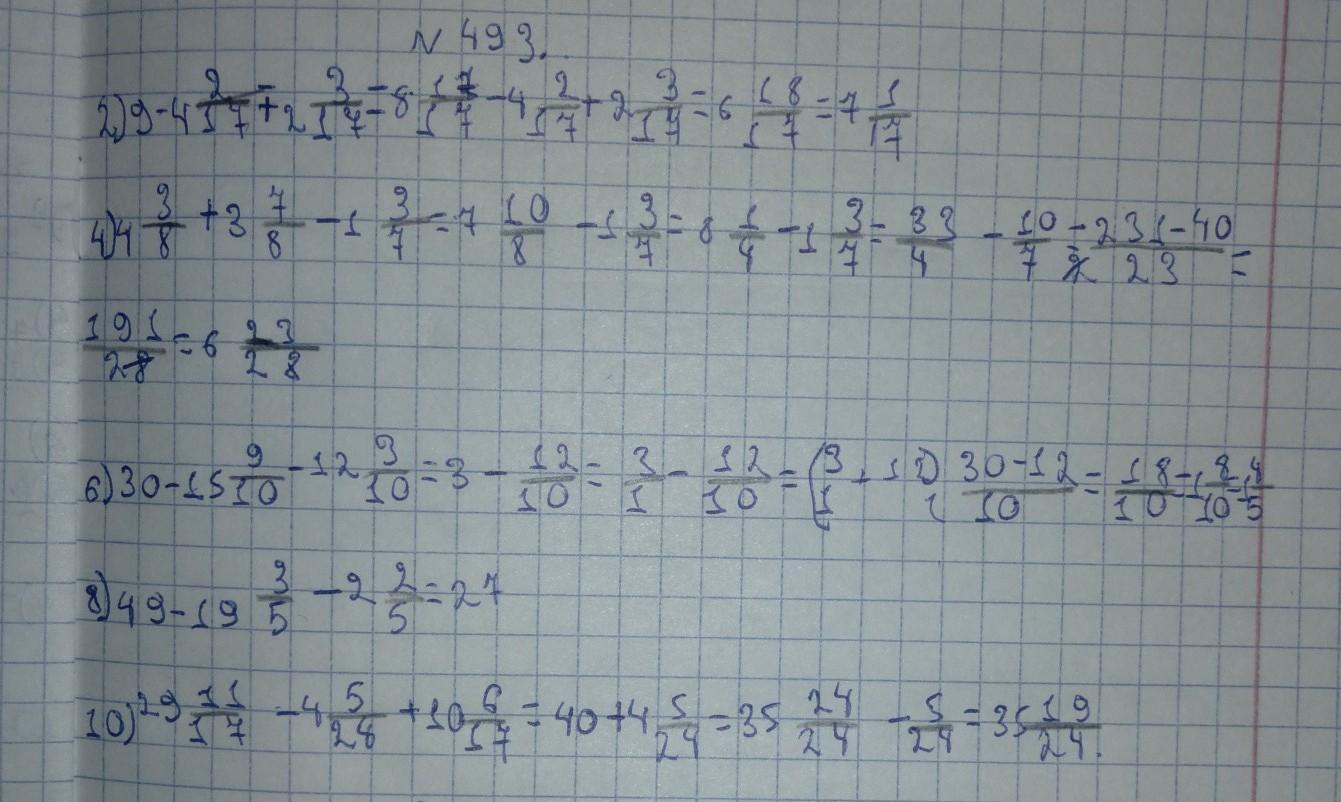 N 493.
2) 9 - 4 2/17 + 2 3/17 = 8 17/17 - 4 2/17 + 2 3/17 = 6 18/17 = 7 1/17
4) 4 3/8 + 3 7/8 - 1 3/7 = 7 10/8 - 1 3/7 = 8 1/4 - 1 3/7 = 33/4 - 10/7 = 231-40/23 =
191/28 = 6 23/28
6) 30 - 15 9/10 - 12 3/10 = 3 - 12/10 = 3/1 - 12/10 = (3/1 30-12/10 = 18/10 = 1 8/10 = 1 4/5
8) 49 - 19 3/5 - 2 2/5 = 27
10) 29 11/17 - 4 5/24 + 10 6/17 = 40 + 4 5/24 = 35 24/24 - 5/24 = 35 19/24.